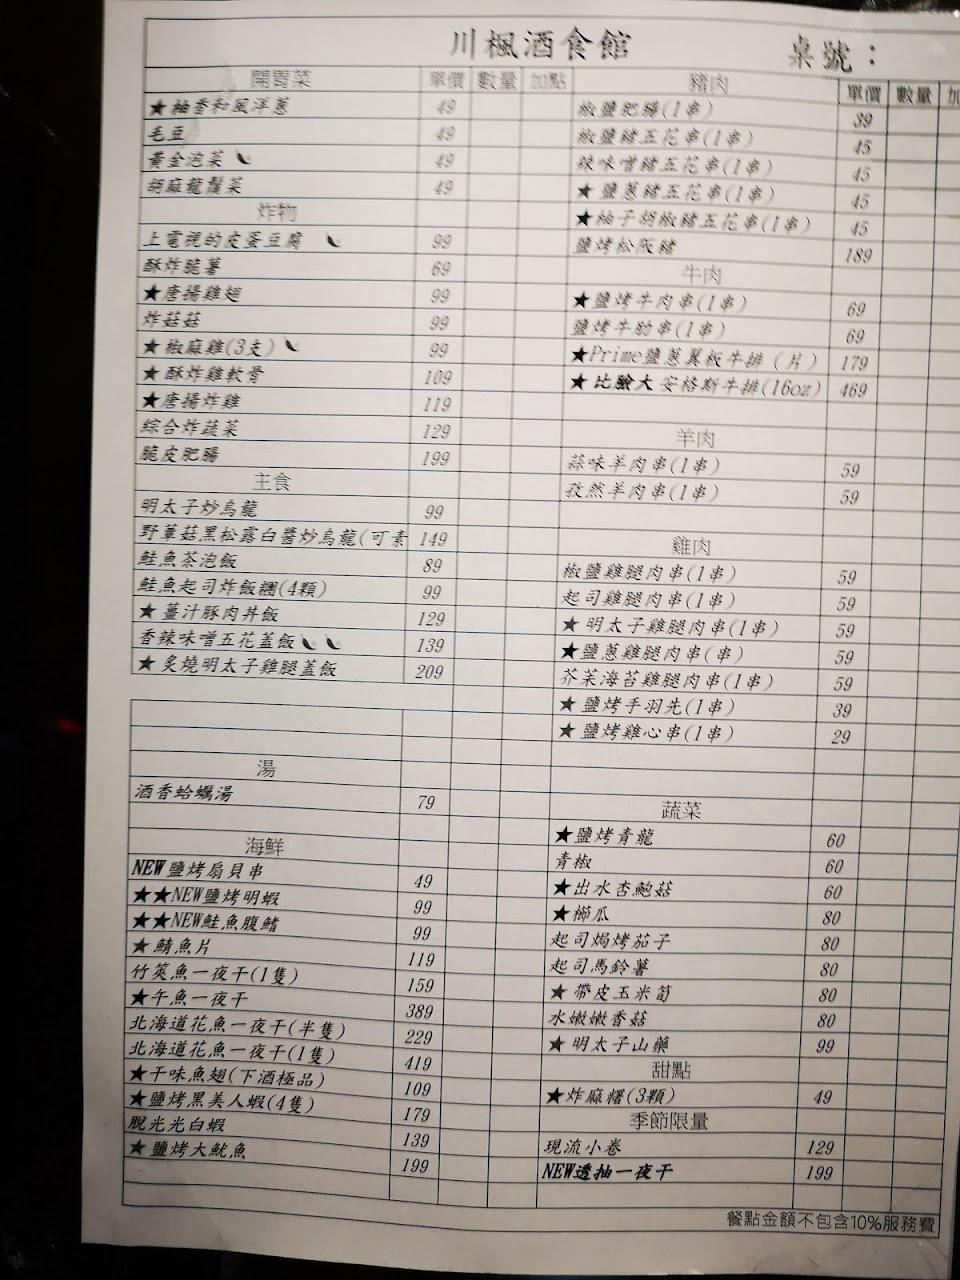 川楓酒食館 桌號：
開胃菜 單價 數量 加點
★柚香和風洋蔥 49
毛豆 49
黃金泡菜 49
胡麻龍鬚菜 49
炸物
上電視的皮蛋豆腐 99
酥炸脆薯 69
★唐揚雞翅 99
炸菇菇 99
★椒麻雞(3支) 99
★酥炸雞軟骨 109
★唐揚炸雞 119
綜合炸蔬菜 129
脆皮肥腸 199
主食
明太子炒烏龍 99
野蕈菇黑松露白醬炒烏龍(可素 149
鮭魚茶泡飯 89
鮭魚起司炸飯糰(4顆) 99
★薑汁豚肉丼飯 129
香辣味噌五花蓋飯 139
★炙燒明太子雞腿蓋飯 209
湯
酒香蛤蠣湯 79
海鮮
NEW鹽烤扇貝串 49
★★NEW鹽烤明蝦 99
★★NEW鮭魚腹鰭 99
★鯖魚片 119
竹筴魚一夜干(1隻) 159
★午魚一夜干 389
北海道花魚一夜干(半隻) 229
北海道花魚一夜干(1隻) 419
★干味魚翅(下酒極品) 109
★鹽烤黑美人蝦(4隻) 179
脫光光白蝦 139
★鹽烤大魷魚 199
豬肉 單價 數量 加
椒鹽肥腸(1串) 39
椒鹽豬五花串(1串) 45
辣味噌豬五花串(1串) 45
★鹽蔥豬五花串(1串) 45
★柚子胡椒豬五花串(1串) 45
鹽烤松阪豬 189
牛肉
★鹽烤牛肉串(1串) 69
鹽烤牛肋串(1串) 69
★Prime鹽蔥翼板牛排（片） 179
★比臉大安格斯牛排(16oz) 469
羊肉
蒜味羊肉串(1串) 59
孜然羊肉串(1串) 59
雞肉
椒鹽雞腿肉串(1串) 59
起司雞腿肉串(1串) 59
★明太子雞腿肉串(1串) 59
★鹽蔥雞腿肉串(串) 59
芥茉海苔雞腿肉串(1串) 59
★鹽烤手羽先(1串) 39
★鹽烤雞心串(1串) 29
蔬菜
★鹽烤青龍 60
青椒 60
★出水杏鮑菇 60
★櫛瓜 80
起司焗烤茄子 80
起司馬鈴薯 80
★帶皮玉米筍 80
水嫩嫩香菇 80
★明太子山藥 99
甜點
★炸麻糬(3顆) 49
季節限量
現流小卷 129
NEW透抽一夜干 199
餐點金額不包含10%服務費